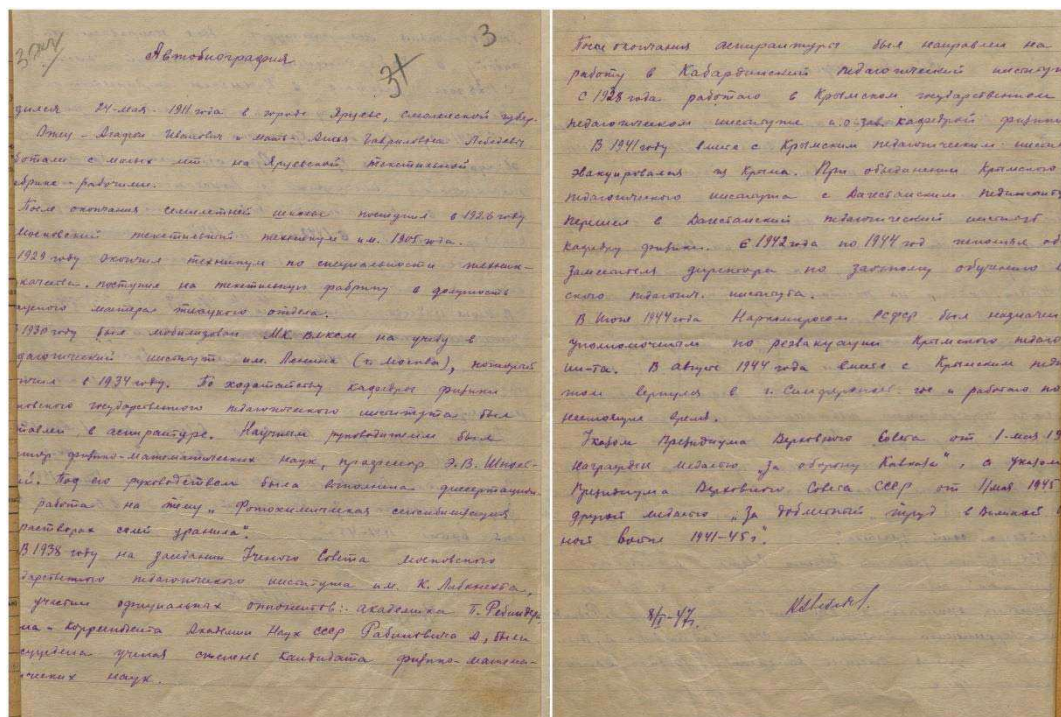 3
Автобиография
31
дился 24-мая 1911 года в городе Ярцево, Смоленской губер.
Отец - Агафон Иванович и мать - Дарья Гавриловна Лебедевы
ботали с малых лет на Ярцевской текстильной
брике - рабочими.
После окончания семилетней школы поступил в 1926 году
Московский текстильный техникум им. 1905 года.
1929 году окончил техникум по специальности техник-
поступил на текстильную фабрику в должность
мастера ткацкого отдела.
1930 году был мобилизован МК ВЛКСМ на учебу в
дагогический институт им. Ленина (г. Москва), который
нчил в 1934 году. По ходатайству кафедры физики
ковского государственного педагогического института был
тавлен в аспирантуре. Научным руководителем был
ктор физико-математических наук, профессор Э.В. Шполь-
й. Под его руководством была выполнена диссертацион.
работа на тему „Фотохимическая сенсибилизация
растворах солей уранила".
В 1938 году на заседании Ученого Совета московского
дарственного педагогического института им. К. Либкнехта,
участии официальных оппонентов: академика П. Ребиндера
на - Корреспондента Академии Наук СССР Рабиновича А, была
суждена ученая степень кандидата физико-матема-
ических наук.
После окончания аспирантуры был направлен на
работу в Кабардинский педагогический институт
С 1938 года работаю в Крымском государственном
педагогическом институте и.о. зав. кафедрой физики
В 1941 году вместе с Крымским педагогическим инсти
эвакуировался из Крыма. При объединении Крымского
педагогического института с Дагестанским пединститу
перешел в Дагестанский педагогический институт
кафедру физики. С 1942 года по 1944 год исполнял об
заместителя директора по заочному обучению
ского педагогич. института.
В Июне 1944 года Наркомпросом РСФСР был назначен
уполномоченным по реэвакуации Крымского педаго
ин-та. В августе 1944 года вместе с Крымским педи
том вернулся в г. Симферополь где и работаю по
настоящее время.
Указом Президиума Верховного Совета от 1-мая 19
награжден медалью „За оборону Кавказа", а указом
Президиума Верховного Совета СССР от мая 1945
другой медалью „За доблестный труд в Великой
ной Войне 1941-45 г."